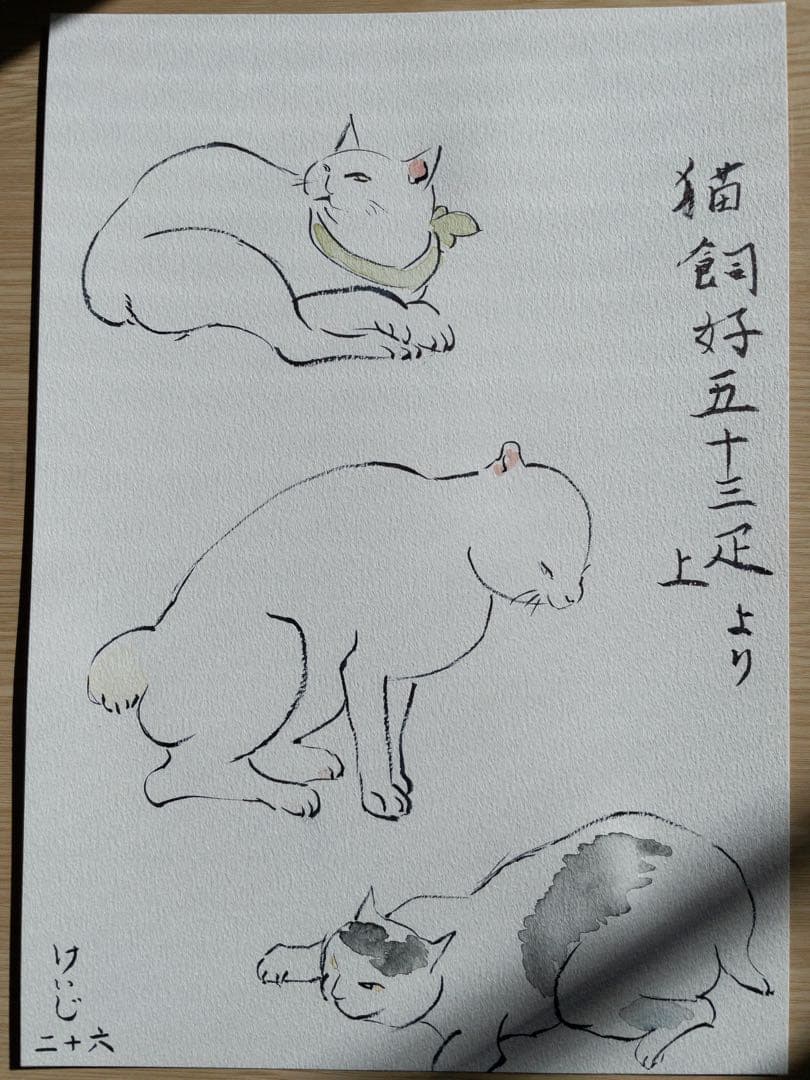 猫飼好五十三疋
上より
けいじ
二十六